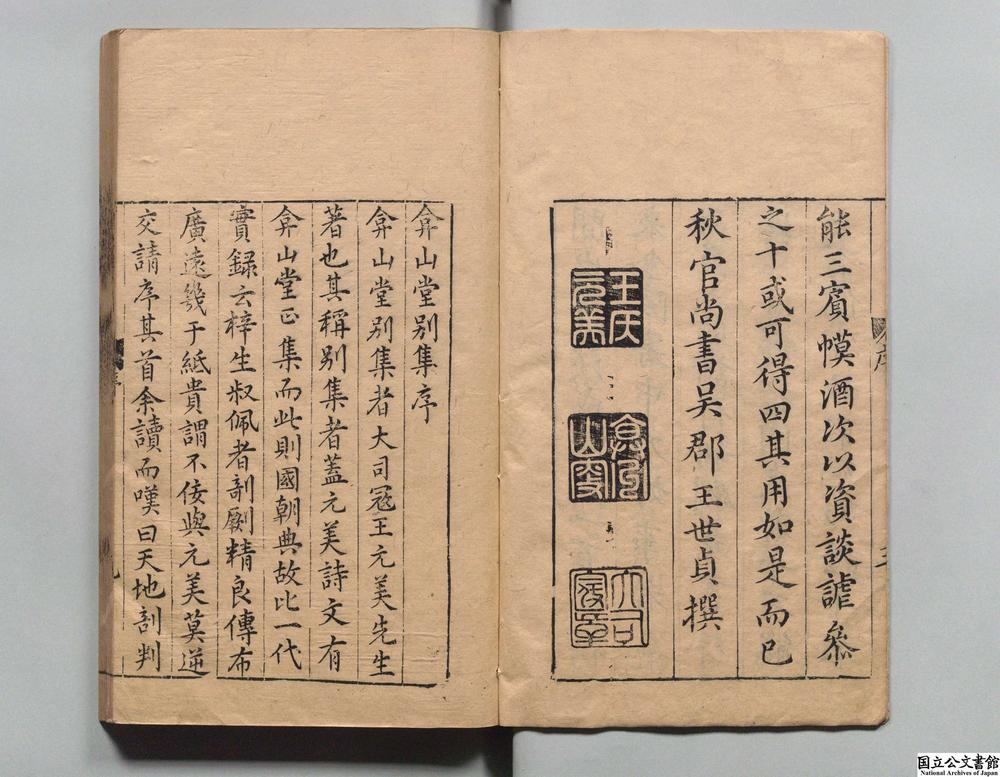 能三賓幙酒次以資談謔參
之十或可得四其用如是而已
秋官尚書吳郡王世貞撰
王氏元美
大司寇章
弇山堂別集序
弇山堂別集者大司寇王元美先生
著也其稱別集者蓋元美詩文有
弇山堂正集而此則國朝典故比一代
實録云梓生叔佩者剞劂精良傳布
廣遠幾于紙貴謂不佞與元美莫逆
交請序其首余讀而嘆曰天地剖判
国立公文書館
National Archives of Japan